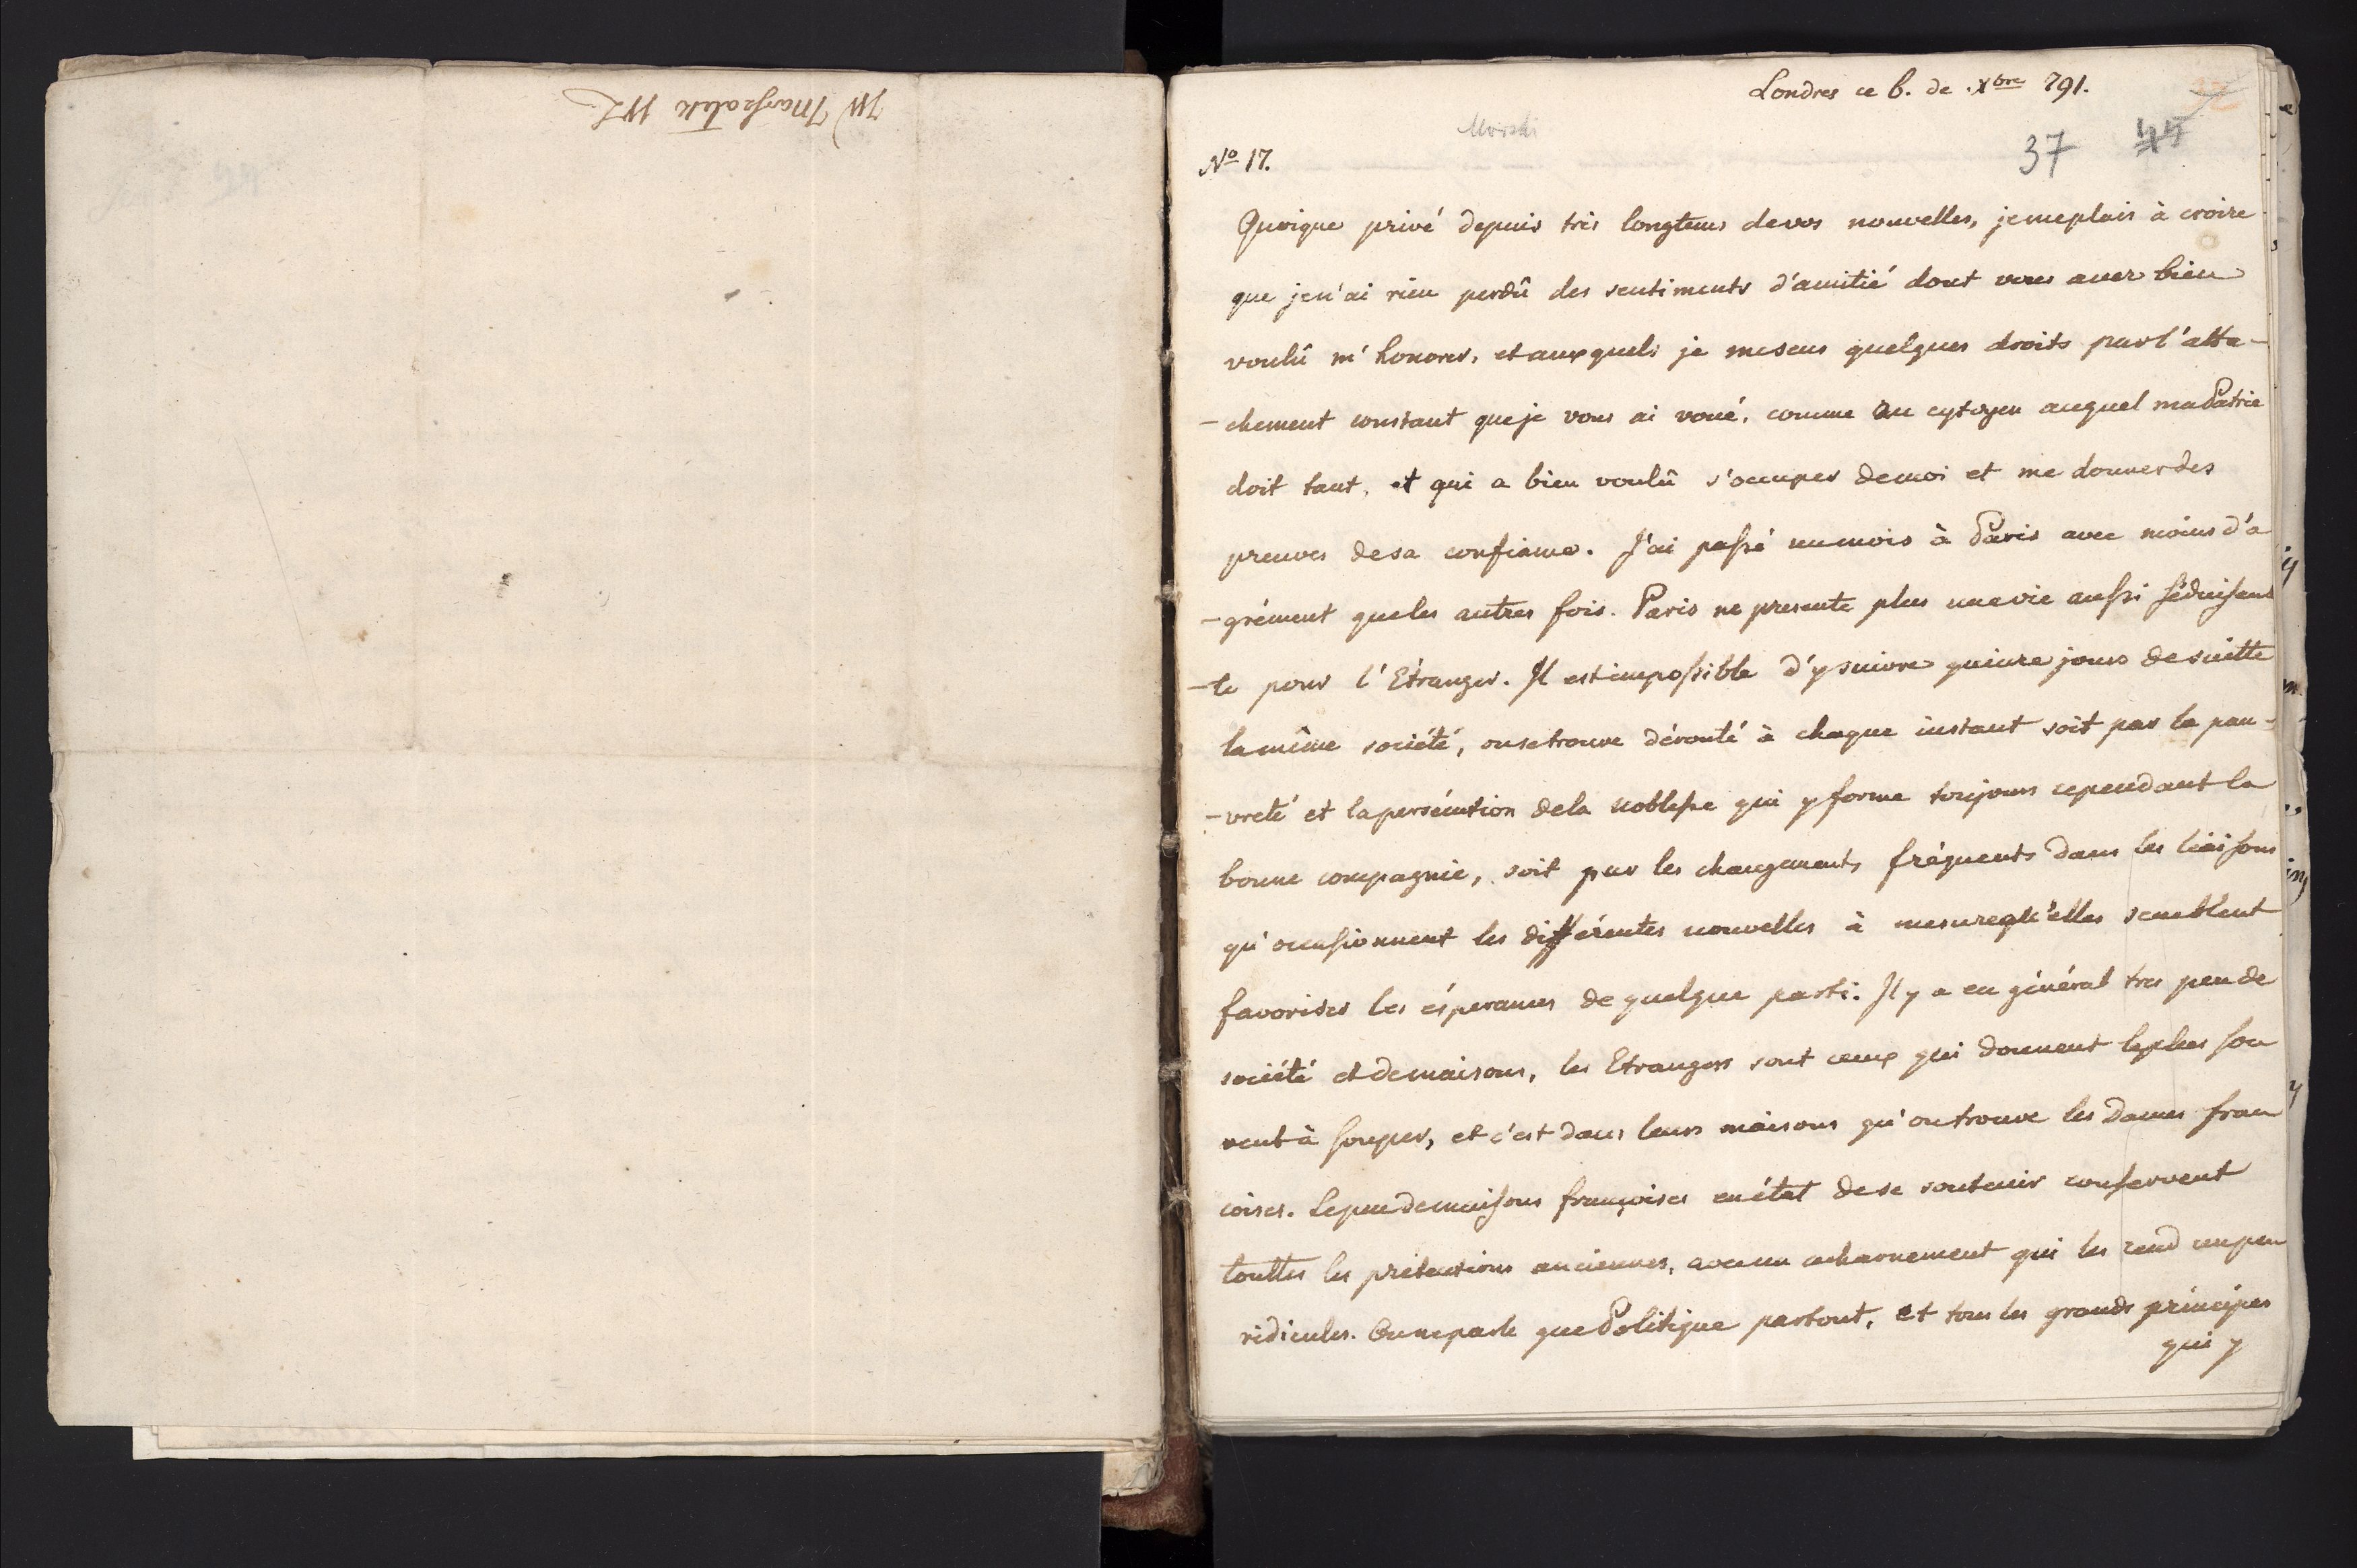 JW Marszałek WL
Londres ce 6. de Xbre 791.
Morski
37 45
No 17.
Quoique privé depuis très longtems de vos nouvelles, je me plais à croire
que je n'ai rien perdû des sentiments d'amitié dont vous avez bien
voulû m'honorer, et auxquels je me sens quelques droits par l'atta-
-chement constant que je vous ai voué, comme au cytoyen auquel ma Patrie
doit tant, et qui a bien voulû s'occuper de moi et me donner des
preuves de sa confiance. J'ai passé un mois à Paris avec moins d'a
-grément que les autres fois. Paris ne presente plus une vie aussi séduisan
-te pour l'Etranger. Il est impossible d'y suivre quinze jours de suitte
la même société, on se trouve dérouté à chaque instant soit par la pau-
-vreté et la persécution de la noblesse qui y forme toujours cependant la
bonne compagnie, soit par les changements fréquents dans les liaisons
qu'occasionnent les différentes nouvelles à mesure qu'elles semblent
favoriser les éspérances de quelque parti. Il y a en général tres peu de
société et de maisons, les Etrangers sont ceux qui donnent le plus sou
vent à souper, et c'est dans leurs maisons qu'on trouve les Dames fran
coises. Le peu de maisons françoises en état de se soutenir conservent
touttes les prétentions anciennes, avec un acharnement qui les rend un peu
ridicules. On ne parle que Politique partout, et tous les grands principes
qui y